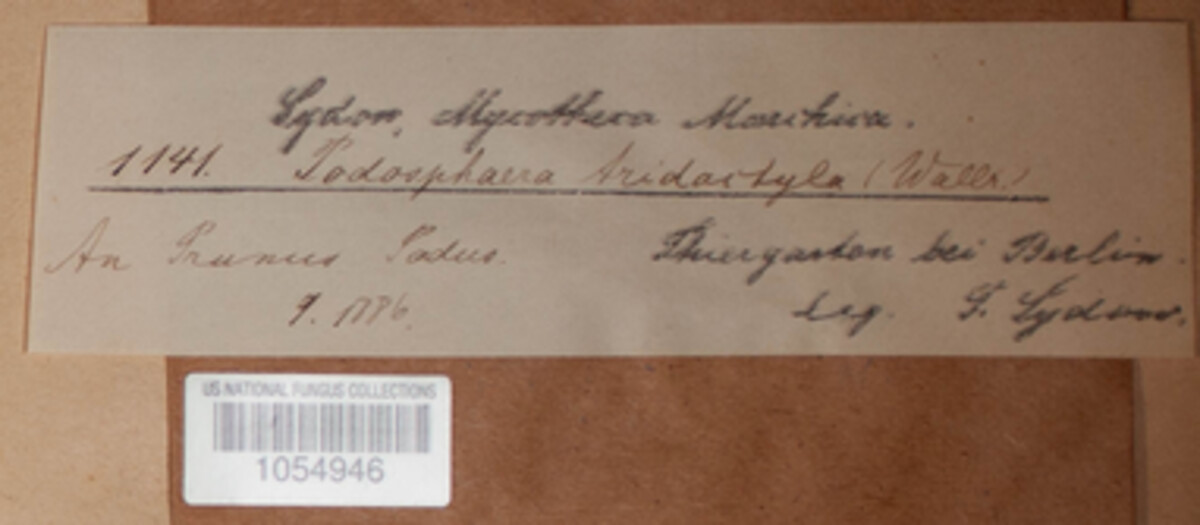 Sydow, Mycotheca Marchica.
1141. Podosphaera tridactyla (Wallr.)
An Prunus Padus. Thiergarten bei Berlin.
9. 1886. leg. P. Sydow.
US NATIONAL FUNGUS COLLECTIONS
1054946